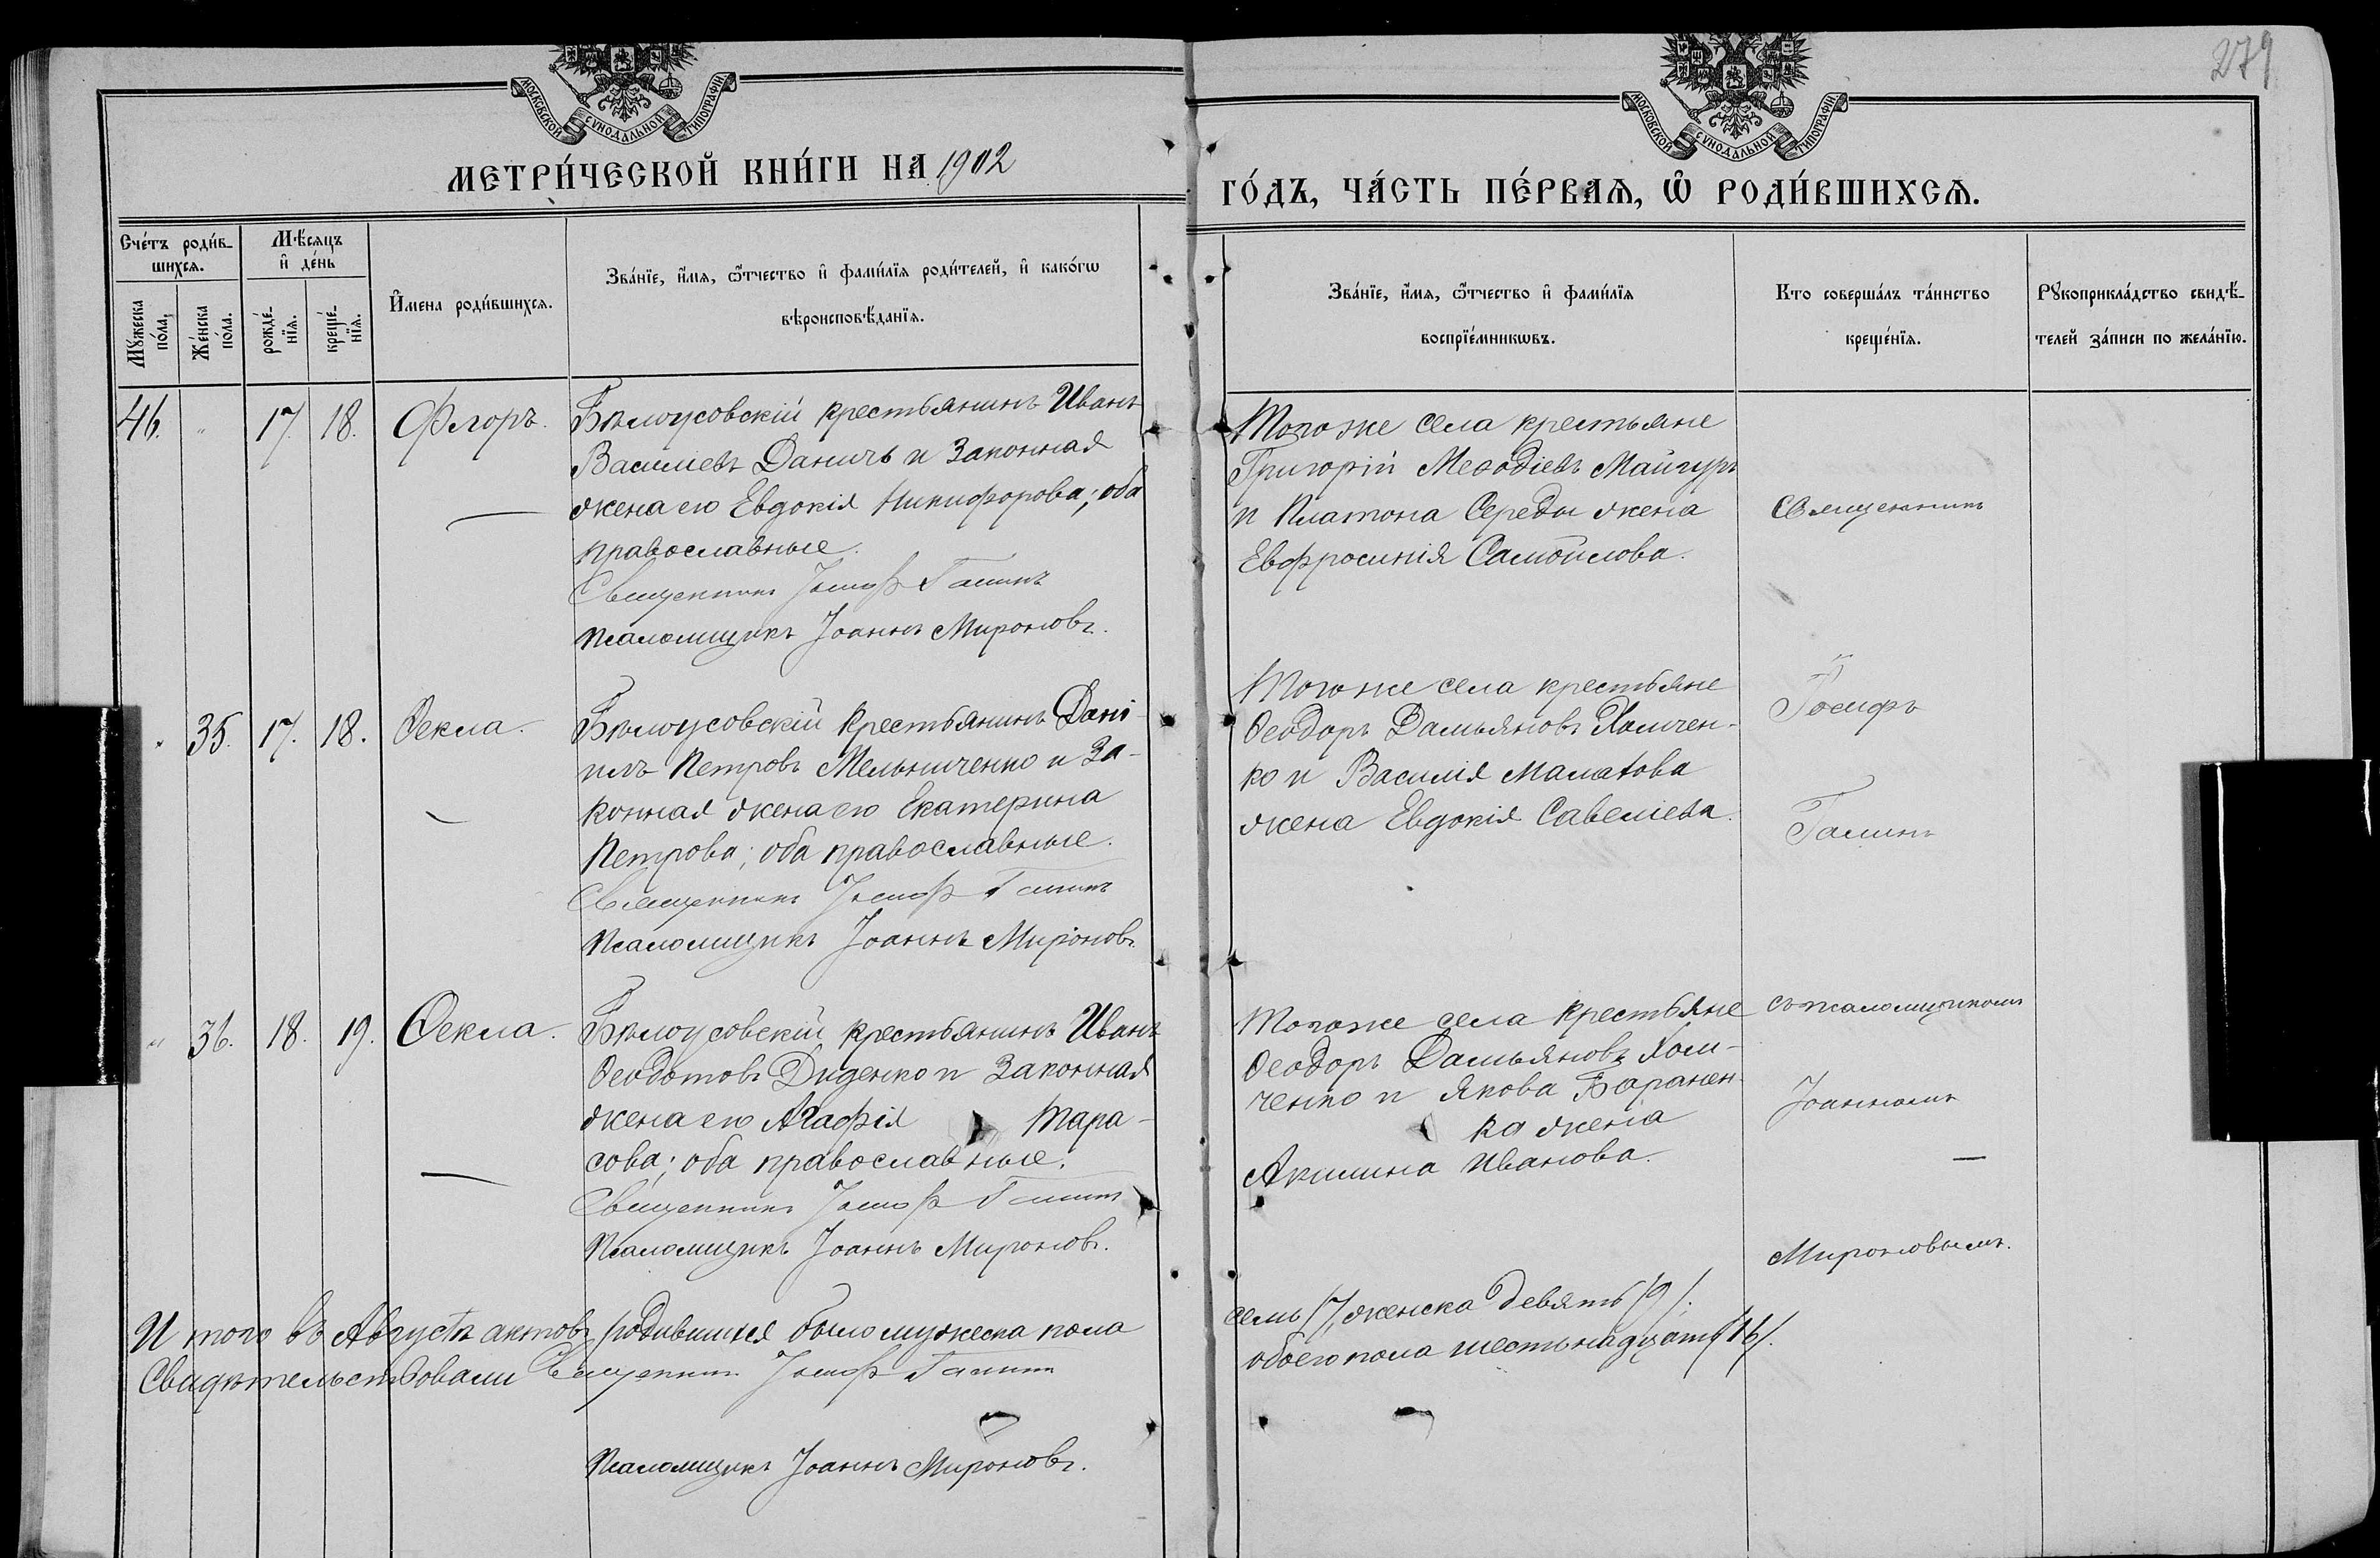 279
МОСКОВСКОЙ СѴНОДАЛЬНОЙ ТИПОГРАФІИ
МОСКОВСКОЙ СѴНОДАЛЬНОЙ ТИПОГРАФІИ
МЕТРИ́ЧЕСКОЙ КНИ́ГИ НА 1902
ГО́ДЪ, ЧА́СТЬ ПЕ́РВАѦ, Ѽ РОДИ́ВШИХСѦ.
Сче́тъ роди́в-
шихсѧ.
Мꙋ́жеска
по́ла.
Же́нска
по́ла.
Мѣ́сяцъ
и҆ де́нь
рожде́-
нїѧ.
креще́-
нїѧ.
И҆мена роди́вшихсѧ.
Зва́нїе, и҆́мѧ, ѻ҆́тчество и҆ фами́лїѧ роди́телей, и҆ како́гѡ
вѣроисповѣ́данїѧ.
Зва́нїе, и҆́мѧ, ѻ҆́тчество и҆ фами́лїѧ
воспрїе́мникѡвъ.
Кто соверша́лъ та́инство
креще́нїѧ.
Рꙋкоприкла́дство свидѣ́-
телей за́писи по жела́нїю.
46. " 17. 18. Флоръ.
Бѣлоусовскій крестьянинъ Иванъ
Василіевъ Даничъ и законная
жена его Евдокія Никифорова; оба
православные.
Священникъ Іосифъ Галинъ
Псаломщикъ Іоаннъ Мироновъ.
Того же села крестьяне
Григорій Меѳодіевъ Майгуръ
и Платона Середы жена
Евфросинія Самойлова.
Священникъ
" 35. 17. 18. Ѳекла.
Бѣлоусовскій крестьянинъ Дані-
илъ Петровъ Мельниченко и за-
конная жена его Екатерина
Петрова; оба православные.
Священникъ Іосифъ Галинъ
Псаломщикъ Іоаннъ Мироновъ.
Того же села крестьяне
Ѳеодоръ Дамьяновъ Хомчен-
ко и Василія Маматова
жена Евдокія Савеліева.
Іосифъ
Галинъ
" 36. 18. 19. Ѳекла.
Бѣлоусовскій крестьянинъ Иванъ
Ѳеодотовъ Диденко и законная
жена его Агафія Тара-
сова; оба православные.
Священникъ Іосифъ Галинъ
Псаломщикъ Іоаннъ Мироновъ.
Того же села крестьяне
Ѳеодоръ Дамьяновъ Хом-
ченко и Якова Баранен-
ка жена
Акилина Иванова.
съ псаломщикомъ
Іоанномъ
Мироновымъ.
И того въ Августѣ актовъ родившихся было мужеска пола
семь /7/ женска девять /9/.
обоего пола шестьнадцать /16/.
Свидѣтельствовали Священникъ Іосифъ Галинъ
Псаломщикъ Іоаннъ Мироновъ.